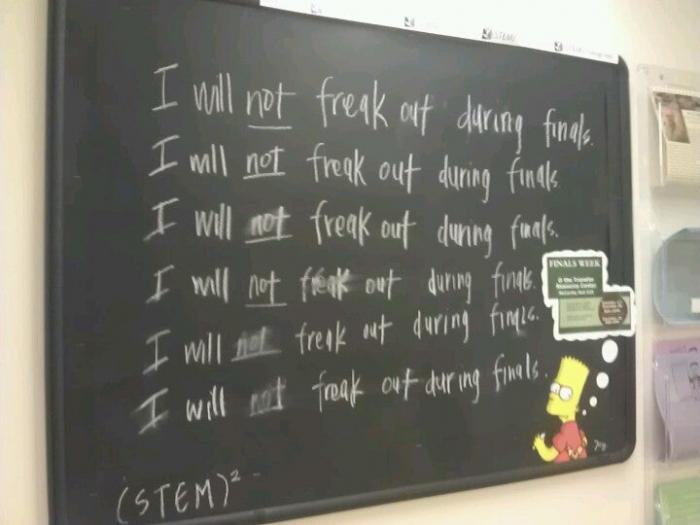 I will not freak out during finals.
I will not freak out during finals
I will not freak out during finals.
I will not freak out during finals.
I will not freak out during finals.
I will not freak out during finals.
FINALS WEEK
@ the Transfer
Resource Center
(STEM)²